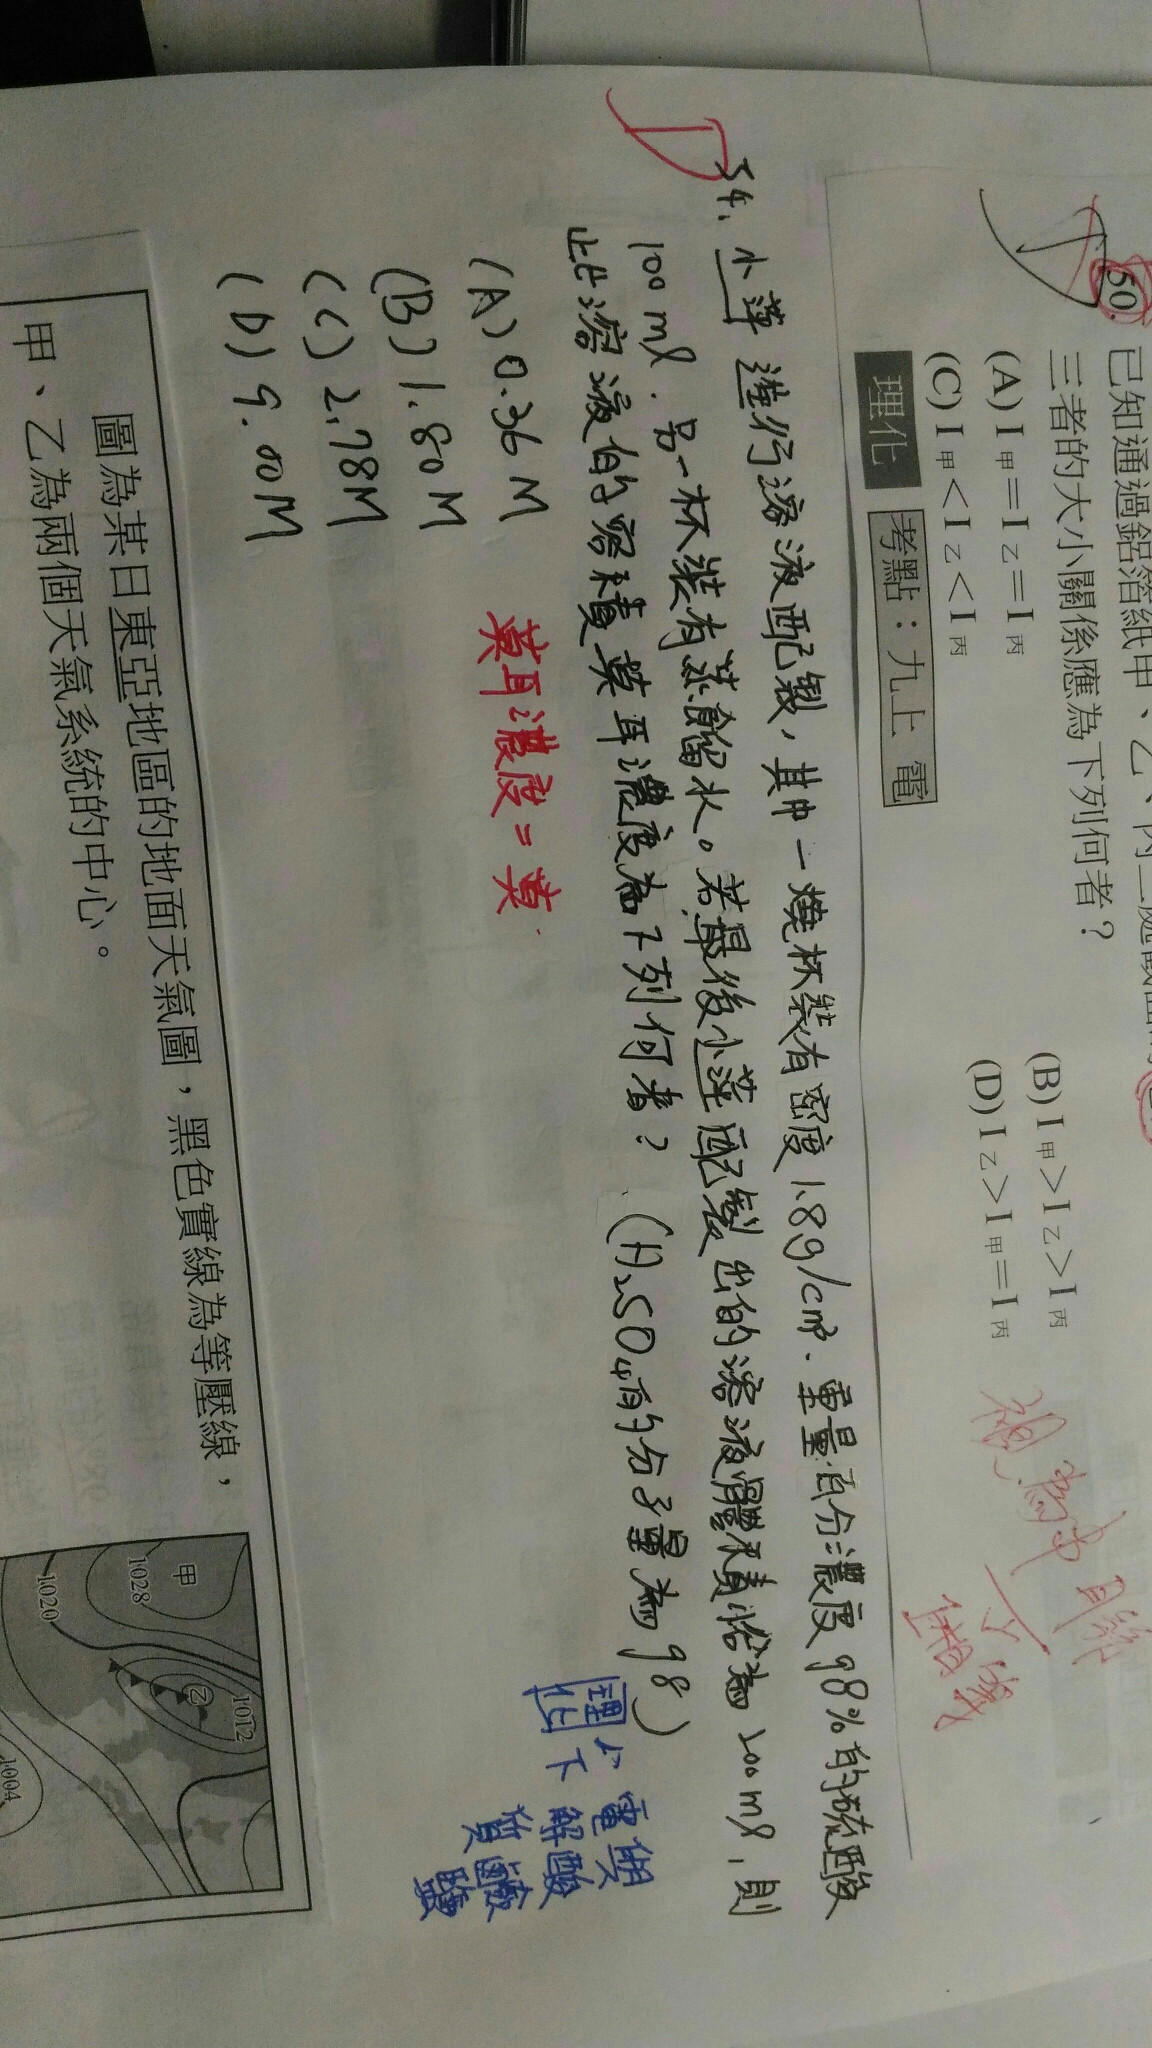 50. 已知通過鋁箔紙甲、乙、丙三處截面的
三者的大小關係應為下列何者？
(A) I甲＝I乙＝I丙
(B) I甲＞I乙＞I丙
(C) I甲＜I乙＜I丙
(D) I乙＞I甲＝I丙
視為串聯
理化 考點：九上 電
54. 小萍進行溶液配製，其中一燒杯裝有密度1.8g/cm³、重量百分濃度98%的硫酸
100ml．另一杯裝有蒸餾水。若最後小萍配製出的溶液體積恰為200ml，則
此溶液的容積莫耳濃度為下列何者？ (H2SO4的分子量為98)
(A) 0.36M
(B) 1.80M
(C) 2.78M
(D) 9.00M
莫耳濃度＝莫
理化 八下 電解質 與酸鹼鹽
圖為某日東亞地區的地面天氣圖，黑色實線為等壓線，
甲、乙為兩個天氣系統的中心。
甲
1028
1020
乙
1012
1004